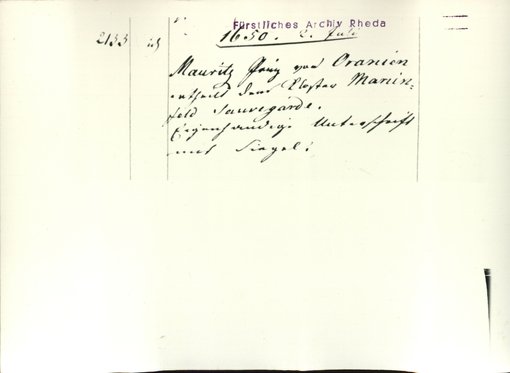 Fürstliches Archiv Rheda
2133
1650. 2. Juli
Mauritz Prinz von Oranien
ertheilt dem Closter Marien-
feld Sauvegarde.
Eigenhändige Unterschrift
mit Siegel.